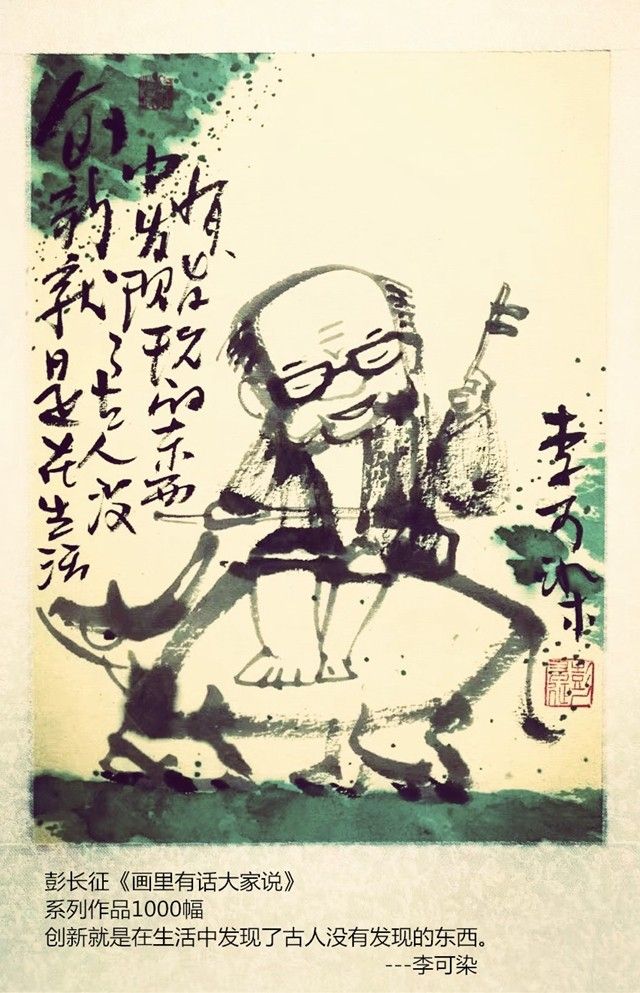 创新就是在生活
中发现了古人没
有发现的东西
李可染
彭长征《画里有话大家说》
系列作品1000幅
创新就是在生活中发现了古人没有发现的东西。
---李可染